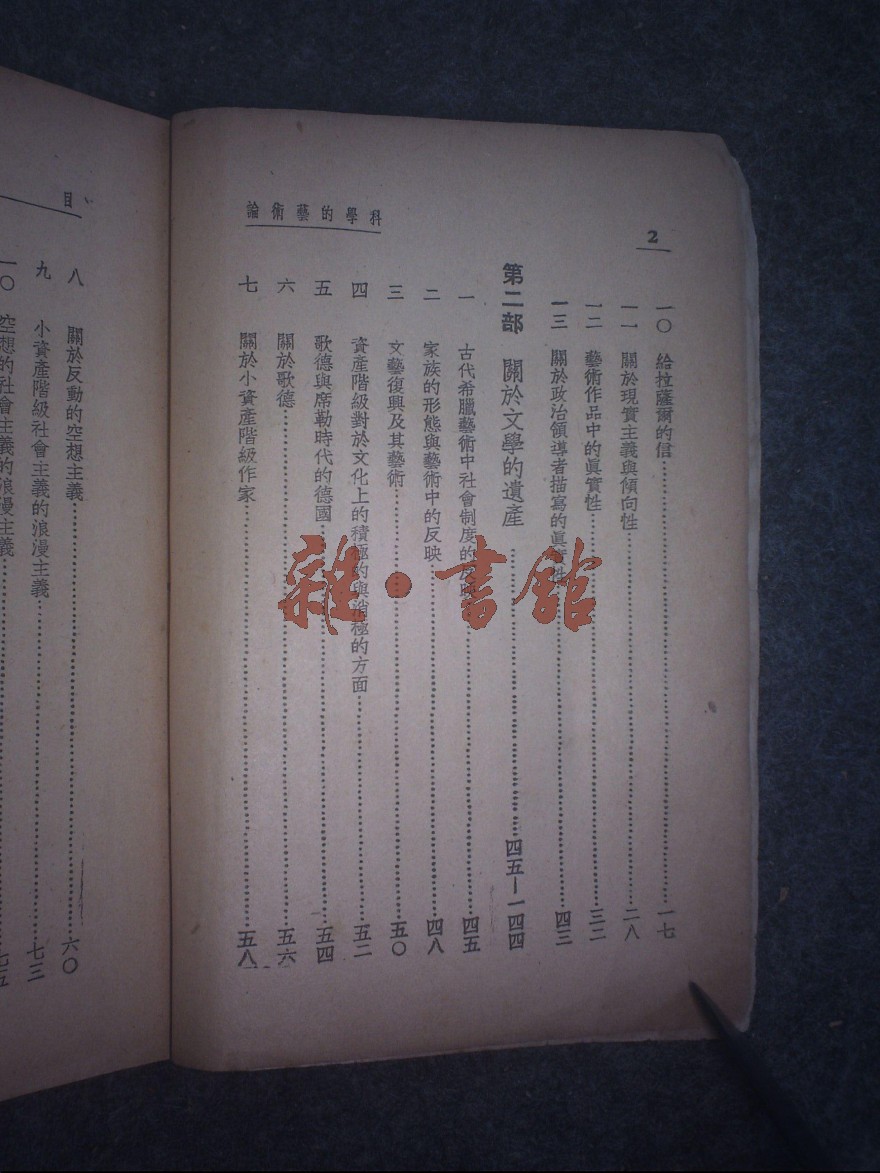 科學的藝術論
2
一〇 給拉薩爾的信……一七
一一 關於現實主義與傾向性……二八
一二 藝術作品中的眞實性……三二
一三 關於政治領導者描寫的眞實性……四三
第二部 關於文學的遺產……四五—一四四
一 古代希臘藝術中社會制度的反映……四五
二 家族的形態與藝術中的反映……四八
三 文藝復興及其藝術……五〇
四 資產階級對於文化上的積極的與消極的方面……五二
五 歌德與席勒時代的德國……五四
六 關於歌德……五六
七 關於小資產階級作家……五八
目
八 關於反動的空想主義……六〇
九 小資產階級社會主義的浪漫主義……七三
一〇 空想的社會主義的浪漫主義……七五
雜·書館